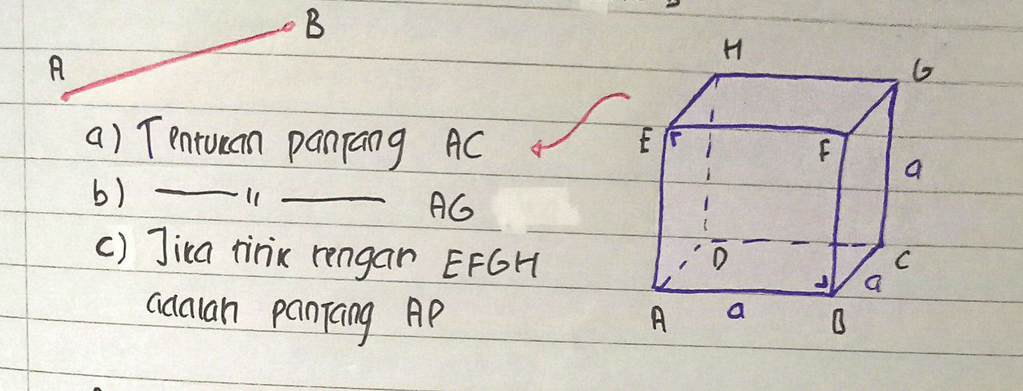 A B
a) Tentukan panjang AC
b) —— " —— AG
c) Jika titik tengah EFGH
adalah panjang AP
H G
E F
a
D C
a
A a B